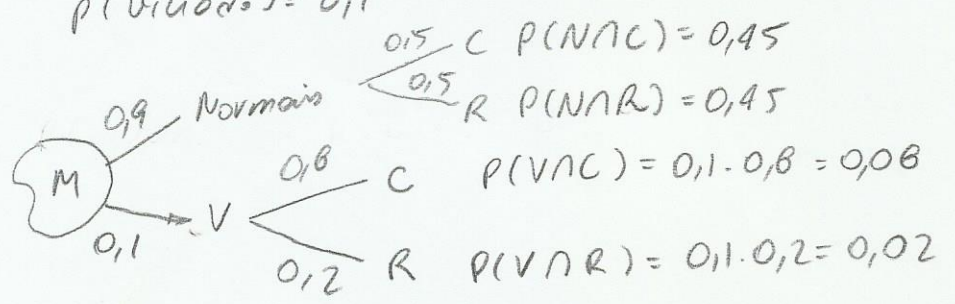 P(viciados) = 0,1
0,5 C P(N∩C) = 0,45
0,9 Normais 0,5 R P(N∩R) = 0,45
M 0,8 C P(V∩C) = 0,1 . 0,8 = 0,08
0,1 V 0,2 R P(V∩R) = 0,1 . 0,2 = 0,02